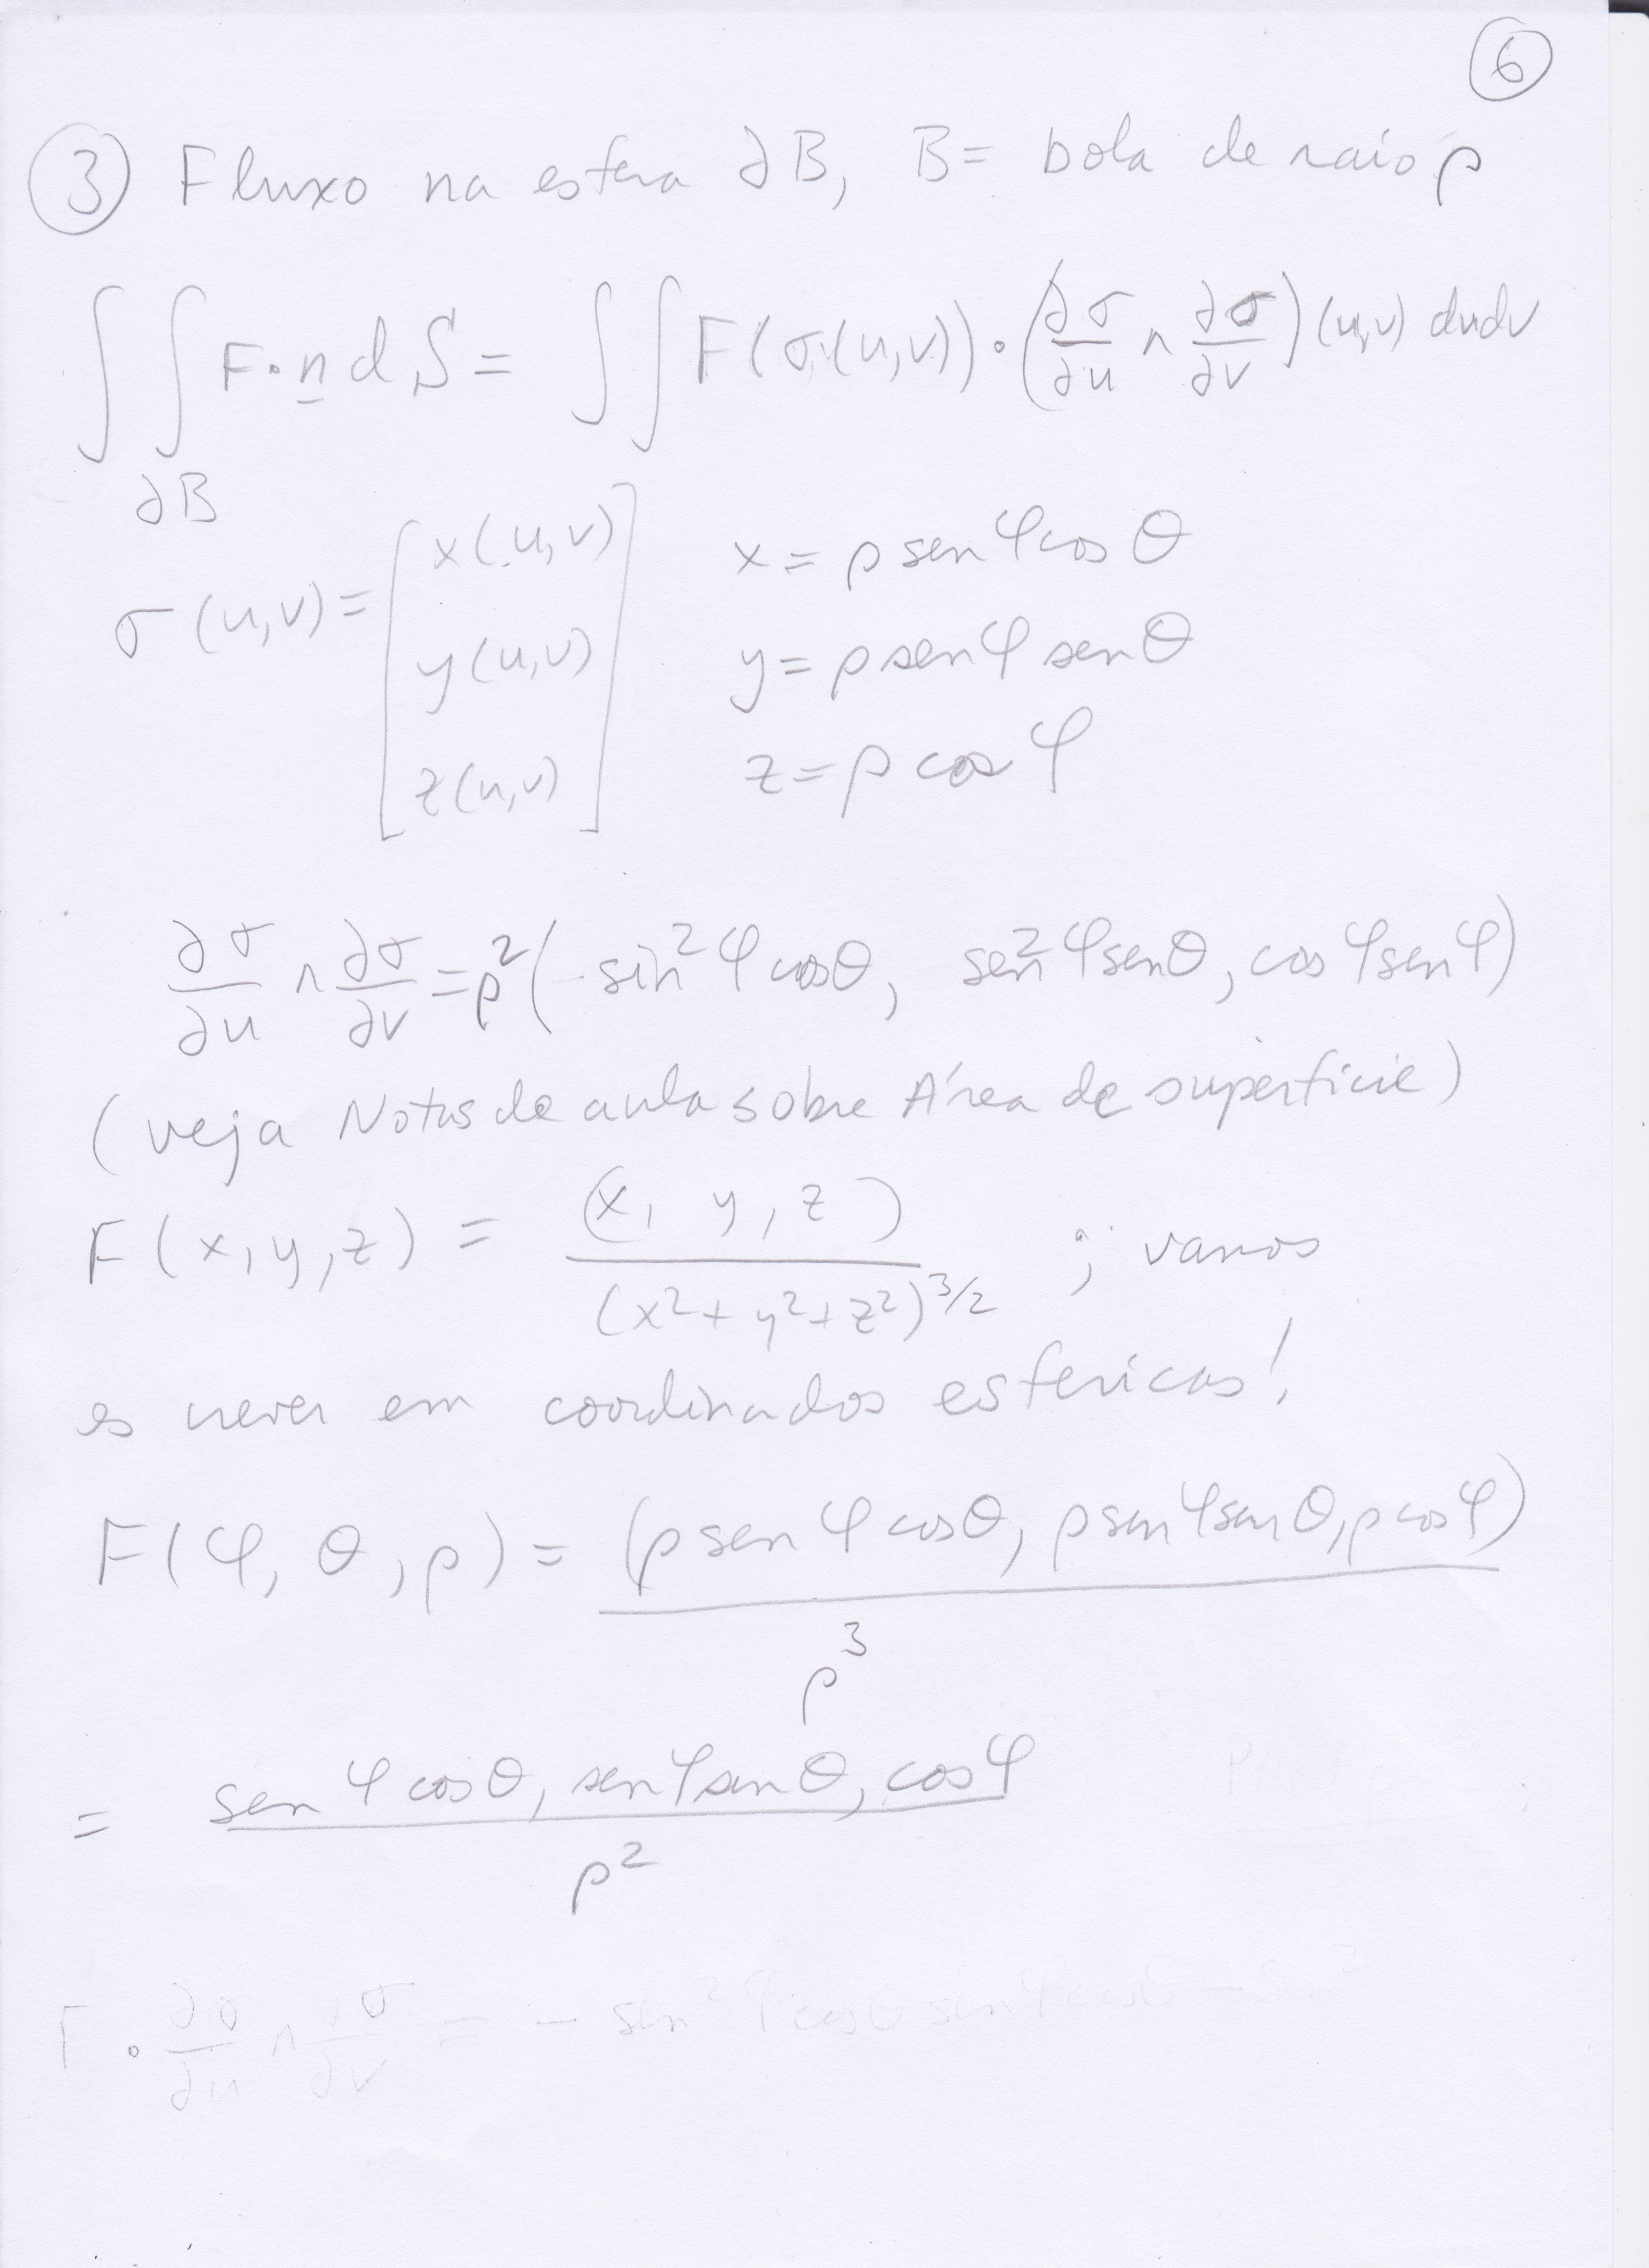 6
3 Fluxo na esfera ∂B, B = bola de raio ρ
∫∫ F·n dS = ∫∫ F(σ(u,v))·(∂σ/∂u ∧ ∂σ/∂v)(u,v) dudv
∂B
σ(u,v) = [x(u,v) x = ρ sen φ cos θ
y(u,v) y = ρ sen φ sen θ
z(u,v)] z = ρ cos φ
∂σ/∂u ∧ ∂σ/∂v = ρ²(-sin²φ cosθ, sen²φ senθ, cosφ senφ)
(veja Notas de aula sobre Área de superfície)
F(x,y,z) = (x, y, z)/(x²+y²+z²)^3/2 ; vamos
escrever em coordinados esfericas!
F(φ, θ, ρ) = (ρ sen φ cosθ, ρ senφ senθ, ρ cosφ)/ρ³
= sen φ cosθ, senφ senθ, cosφ/ρ²
F · ∂σ/∂u ∧ ∂σ/∂v = - sen²φ cosθ senφ cosθ